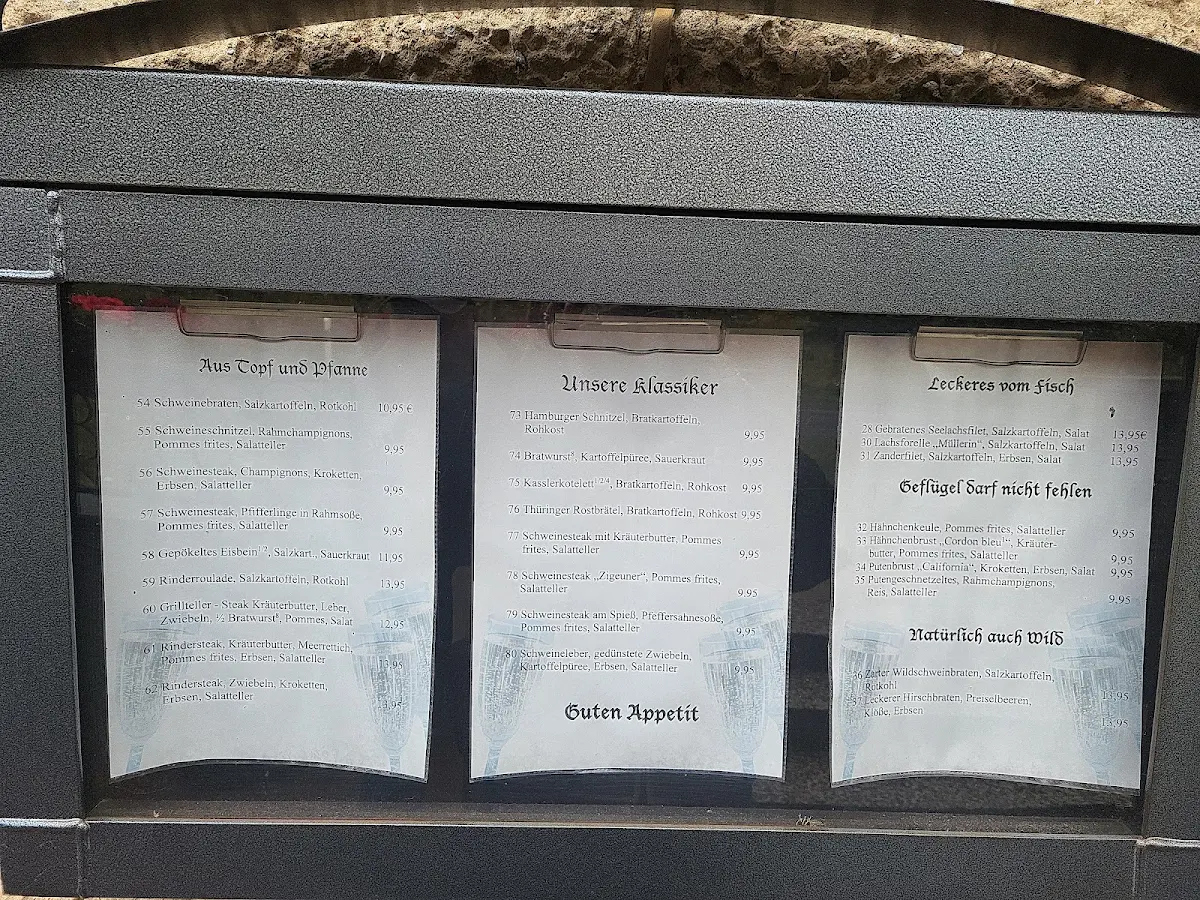 Aus Topf und Pfanne
54 Schweinebraten, Salzkartoffeln, Rotkohl 10,95 €
55 Schweineschnitzel, Rahmchampignons,
Pommes frites, Salatteller 9,95
56 Schweinesteak, Champignons, Kroketten,
Erbsen, Salatteller 9,95
57 Schweinesteak, Pfifferlinge in Rahmsoße,
Pommes frites, Salatteller 9,95
58 Gepökeltes Eisbein1/2, Salzkart., Sauerkraut 11,95
59 Rinderroulade, Salzkartoffeln, Rotkohl 13,95
60 Grillteller - Steak Kräuterbutter, Leber,
Zwiebeln, ½ Bratwurst8, Pommes, Salat 12,95
61 Rindersteak, Kräuterbutter, Meerrettich,
Pommes frites, Erbsen, Salatteller 13,95
62 Rindersteak, Zwiebeln, Kroketten,
Erbsen, Salatteller 13,95
Unsere Klassiker
73 Hamburger Schnitzel, Bratkartoffeln,
Rohkost 9,95
74 Bratwurst8, Kartoffelpüree, Sauerkraut 9,95
75 Kasslerkotelett1/2/4, Bratkartoffeln, Rohkost 9,95
76 Thüringer Rostbrätel, Bratkartoffeln, Rohkost 9,95
77 Schweinesteak mit Kräuterbutter, Pommes
frites, Salatteller 9,95
78 Schweinesteak „Zigeuner“, Pommes frites,
Salatteller 9,95
79 Schweinesteak am Spieß, Pfeffersahnesoße,
Pommes frites, Salatteller 9,95
80 Schweineleber, gedünstete Zwiebeln,
Kartoffelpüree, Erbsen, Salatteller 9,95
Guten Appetit
Leckeres vom Fisch
28 Gebratenes Seelachsfilet, Salzkartoffeln, Salat 13,95€
30 Lachsforelle „Müllerin“, Salzkartoffeln, Salat 13,95
31 Zanderfilet, Salzkartoffeln, Erbsen, Salat 13,95
Geflügel darf nicht fehlen
32 Hähnchenkeule, Pommes frites, Salatteller 9,95
33 Hähnchenbrust „Cordon bleu“, Kräuter-
butter, Pommes frites, Salatteller 9,95
34 Putenbrust „California“, Kroketten, Erbsen, Salat 9,95
35 Putengeschnetzeltes, Rahmchampignons,
Reis, Salatteller 9,95
Natürlich auch Wild
36 Zarter Wildschweinbraten, Salzkartoffeln,
Rotkohl 13,95
37 Leckerer Hirschbraten, Preiselbeeren,
Klöße, Erbsen 13,95